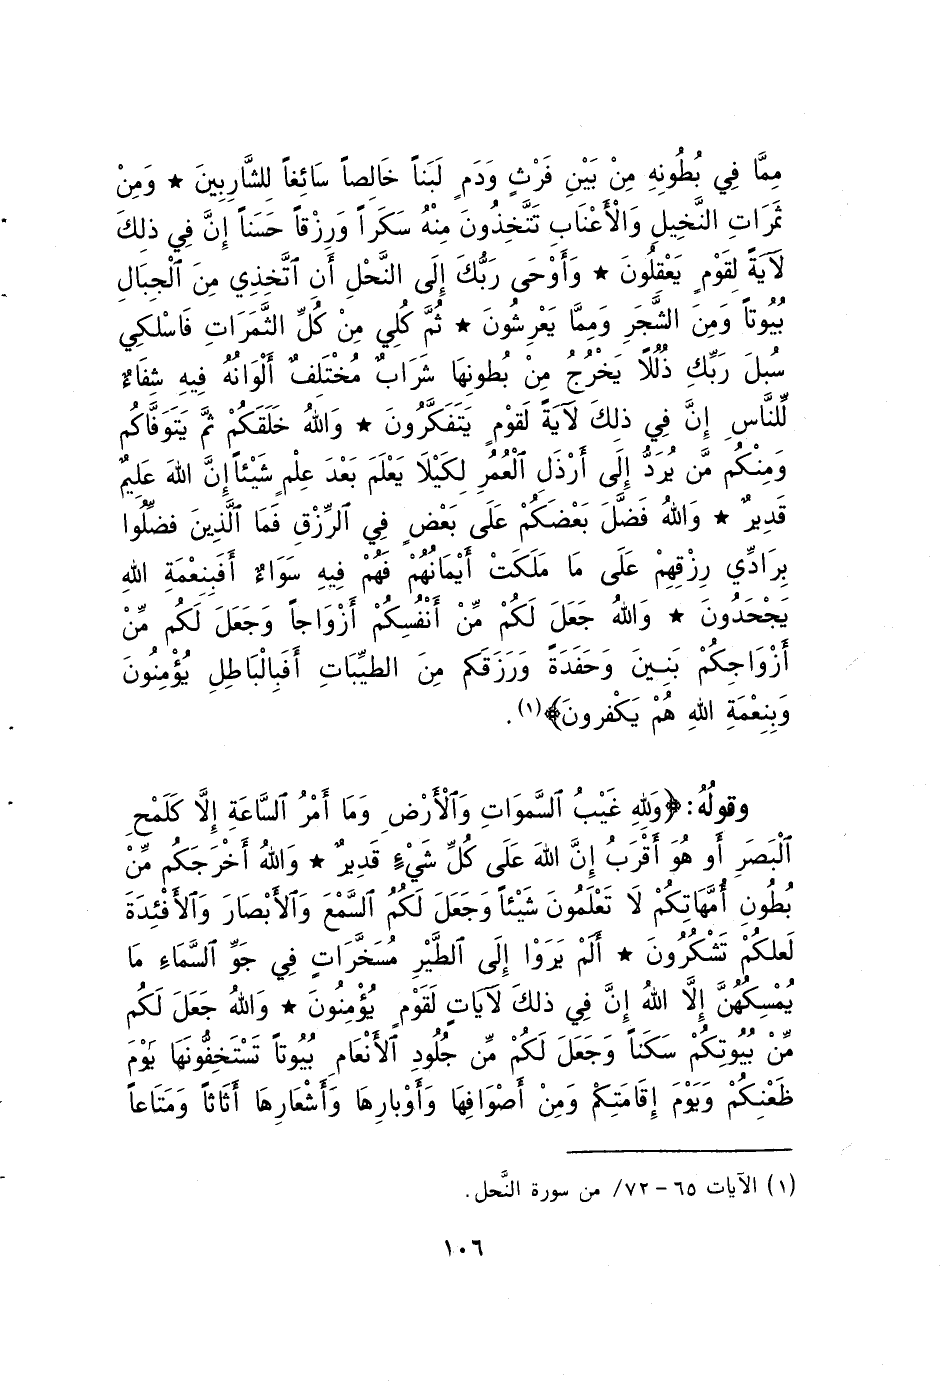 مِمَّا فِي بُطُونِهِ مِنْ بَيْنِ فَرْثٍ وَدَمٍ لَبَناً خَالِصاً سَائِغاً لِلشَّارِبِينَ ★ وَمِنْ
ثَمَرَاتِ النَّخِيلِ وَالْأَعْنَابِ تَتَّخِذُونَ مِنْهُ سَكَراً وَرِزْقاً حَسَناً إِنَّ فِي ذلِكَ
لَآيَةً لِقَوْمٍ يَعْقِلُونَ ★ وَأَوْحَى رَبُّكَ إِلَى النَّحْلِ أَنِ ٱتَّخِذِي مِنَ ٱلْجِبَالِ
بُيُوتاً وَمِنَ الشَّجَرِ وَمِمَّا يَعْرِشُونَ ★ ثُمَّ كُلِي مِنْ كُلِّ الثَّمَرَاتِ فَاسْلكِي
سُبلَ رَبِّكِ ذُلُلًا يَخْرُجُ مِنْ بُطونِهَا شَرَابٌ مُخْتَلِفٌ أَلْوَانُهُ فِيهِ شِفَاءٌ
لِّلنَّاسِ إِنَّ فِي ذلِكَ لَآيَةً لَقَومٍ يَتَفَكَّرُونَ ★ وَاللهُ خَلَقَكُمْ ثُمَّ يَتَوَفَّاكُم
وَمِنْكُم مَّن يُرَدُّ إِلَى أَرْذَلِ ٱلْعُمُرِ لِكَيْلَا يَعْلَمَ بَعْدَ عِلْمٍ شَيْئاً إِنَّ اللهَ عَلِيمٌ
قَدِيرٌ ★ وَاللهُ فَضَّلَ بَعْضَكُمْ عَلَى بَعْضٍ فِي ٱلرِّزْقِ فَمَا ٱلَّذِينَ فضِّلُوا
بِرَادِّي رِزْقِهِمْ عَلَى مَا مَلَكَتْ أَيْمَانُهُمْ فَهُمْ فِيهِ سَوَاءٌ أَفَبِنِعْمَةِ اللهِ
يَجْحَدُونَ ★ وَاللهُ جَعَلَ لَكُمْ مِّنْ أَنْفُسِكُمْ أَزْوَاجاً وَجَعَلَ لَكُم مِّنْ
أَزْوَاجِكُمْ بَنِينَ وَحَفَدَةً وَرَزَقَكم مِنَ الطيِّبَاتِ أَفَبِالْبَاطِلِ يُؤْمِنُونَ
وَبِنِعْمَةِ اللهِ هُمْ يَكْفرونَ﴾(١).
وقولُهُ: ﴿وَللهِ غَيْبُ ٱلسَّموَاتِ وَٱلْأَرْضِ وَمَا أَمْرُ ٱلسَّاعَةِ إِلَّا كَلَمْحِ
ٱلْبَصَرِ أَو هُوَ أَقْرَبُ إِنَّ اللهَ عَلَى كُلِّ شَيْءٍ قَدِيرٌ ★ وَاللهُ أَخْرَجَكُم مِّنْ
بُطُونِ أُمَّهَاتِكُمْ لَا تَعْلَمُونَ شَيْئاً وَجَعَلَ لَكُمُ ٱلسَّمْعَ وَٱلأَبْصَارَ وَٱلأَفْئِدَةَ
لَعلكُمْ تَشْكُرُونَ ★ أَلَمْ يَرَوْا إِلَى ٱلطَّيْرِ مُسَخَّرَاتٍ فِي جَوِّ ٱلسَّمَاءِ مَا
يُمْسِكهُنَّ إِلَّا اللهُ إِنَّ فِي ذلكَ لَآيَاتٍ لَقَوْمٍ يُؤْمِنُونَ ★ وَاللهُ جَعَلَ لَكُم
مِّنْ بُيُوتِكُمْ سَكَناً وَجَعَلَ لَكُمْ مِّن جُلُودِ ٱلأَنْعَامِ بُيُوتاً تَسْتَخِفُّونَهَا يَوْمَ
ظَعْنِكُمْ وَيَوْمَ إِقَامَتِكمْ وَمِنْ أَصْوَافِهَا وَأَوْبارِهَا وَأَشْعارِهَا أَثَاثاً وَمَتَاعاً
(١) الآيات ٦٥ – ٧٢/ من سورة النَّحل.
١٠٦